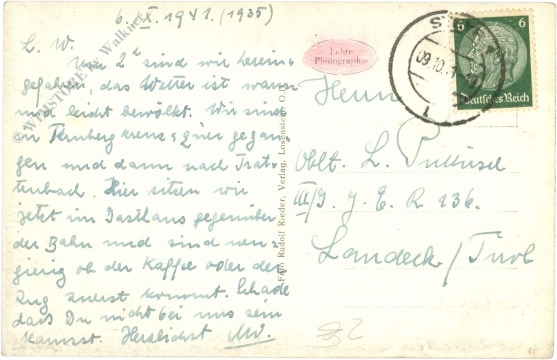 6. IX. 1941. (1935)
L. W.
Um 2h sind wir herein=
gefahren, das Wetter ist warm
und leicht bewölkt. Wir sind
in Ternberg kreuz & quer gegan-
gen und dann nach Trat-
tenbach. Hier sitzen wir
jetzt im Gasthaus gegenüber
der Bahn und sind neu=
gierig ob der Kaffee oder der
Zug zuerst kommt. Schade
daß Du nicht bei uns sein
kannst. Herzlichst
Echte
Photographie
Foto Rudolf Rieder, Verlag, Losenstein O.
09.10.
1
6 6
Deutsches Reich
Herrn
Oblt. L.
III/J. G. E. R. 136.
Landeck / Tirol